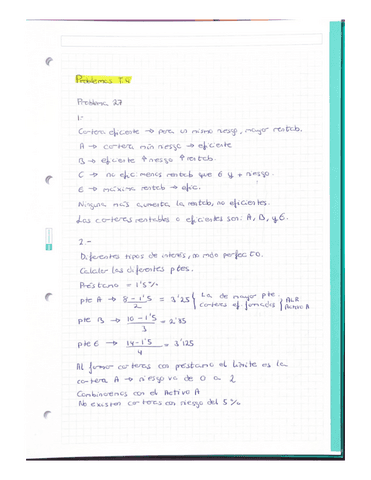 Problemas T.4
Problema 27
1.-
Cartera eficiente → para un mismo riesgo, mayor rentab.
A → cartera mín riesgo → eficiente
B → eficiente ↑ riesgo ↑ rentab.
C → no efic. menos rentab que 6 y + riesgo.
E → máxima rentab → efic.
Ninguna más aumenta la rentab, no eficientes.
Las carteras rentables o eficientes son: A, B, y 6.
2.-
Diferentes tipos de interés, no mdo perfecto.
Calcular las diferentes ptes.
Préstamo = 1'5%
pte A → 8-1'5 / 2 = 3'25 { La de mayor pte. carteras ef. formadas { ALR Activo A
pte B → 10-1'5 / 3 = 2'85
pte E → 14-1'5 / 4 = 3'125
Al formar carteras con préstamo el límite es la
cartera A → riesgo va de 0 a 2
Combinaremos con el Activo A
No existen carteras con riesgo del 5%